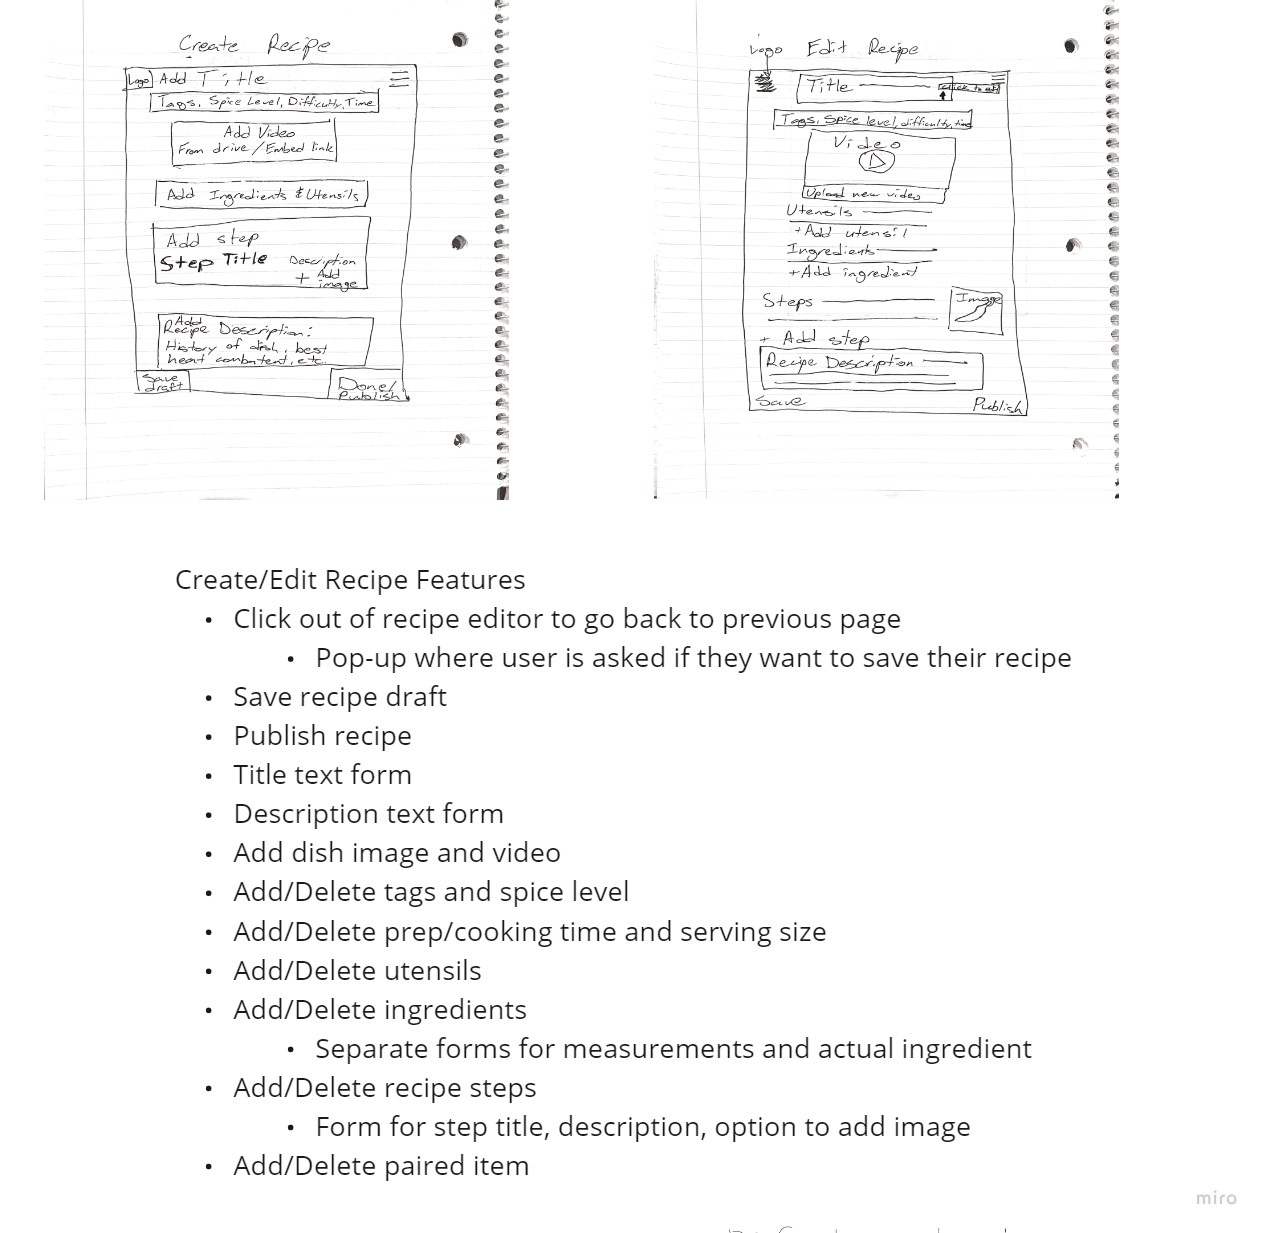 Create Recipe
Logo Add Title
Tags, Spice Level, Difficulty, Time
Add Video
From drive/Embed link
Add Ingredients & Utensils
Add step
Step Title Description
+ Add
image
Add
Recipe Description:
History of dish, best
heat combatent, etc.
Save
draft
Done/
Publish
Logo Edit Recipe
Title
Tags, Spice level, difficulty, time
Video
Upload new video
Utensils
+Add utensil
Ingredients
+Add ingredient
Steps
Image
+ Add step
Recipe Description
Save
Publish
Create/Edit Recipe Features
• Click out of recipe editor to go back to previous page
• Pop-up where user is asked if they want to save their recipe
• Save recipe draft
• Publish recipe
• Title text form
• Description text form
• Add dish image and video
• Add/Delete tags and spice level
• Add/Delete prep/cooking time and serving size
• Add/Delete utensils
• Add/Delete ingredients
• Separate forms for measurements and actual ingredient
• Add/Delete recipe steps
• Form for step title, description, option to add image
• Add/Delete paired item
miro